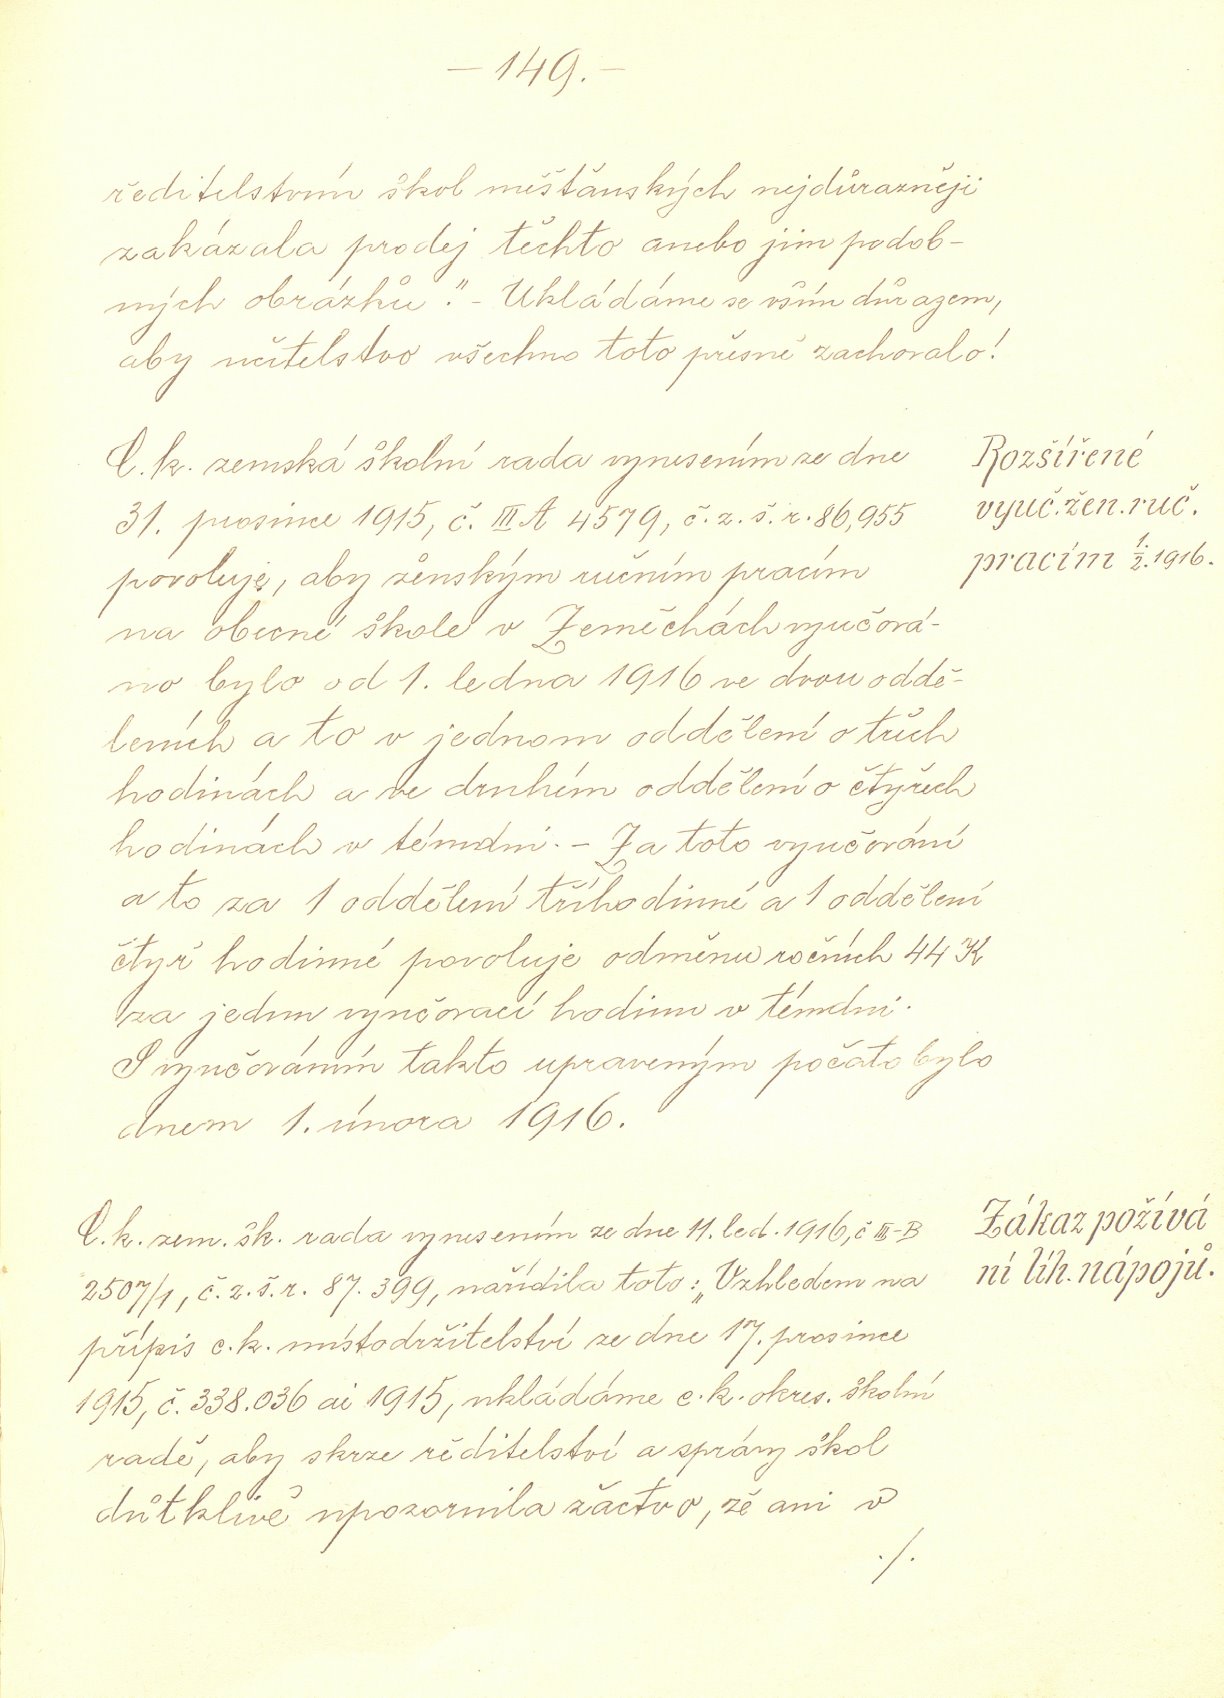 – 149. –
ředitelstvím škol měšťanských nejdůrazněji
zakázala prodej těchto anebo jim podob-
ných obrázků." - Ukládáme se vším důrazem,
aby učitelstvo všechno toto přesně zachovalo!
C. k. zemská školní rada vynesením ze dne
31. prosince 1915, č. III A 4579, č. z. š. r. 86,955
povoluje, aby ženským ručním pracím
na obecné škole v Zeměchách vyučová-
no bylo od 1. ledna 1916 ve dvou oddě-
leních a to v jednom oddělení o třech
hodinách a ve druhém oddělení o čtyřech
hodinách v témdni. - Za toto vyučování
a to za 1 oddělení tříhodinné a 1 oddělení
čtyř hodinné povoluje odměnu ročních 44 K
za jednu vyučovací hodinu v témdni.
S vyučováním takto upraveným počato bylo
dnem 1. února 1916.
Rozšířené
vyuč. žen. ruč.
pracím 1./2. 1916.
C. k. zem. šk. rada vynesením ze dne 11. led. 1916, č III-B
2507/1, č. z. š. r. 87.399, nařídila toto: „Vzhledem na
přípis c. k. místodržitelství ze dne 17. prosince
1915, č. 338.036 ai 1915, ukládáme c. k. okres. školní
radě, aby skrze ředitelství a správy škol
důtklivě upozornila žactvo, že ani v
./.
Zákaz požívá
ní lih. nápojů.